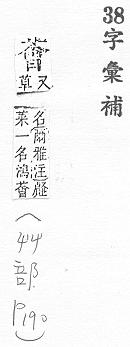 38字彙補
又
草
名爾雅注
菜一名鴻薈
(44部
P190)